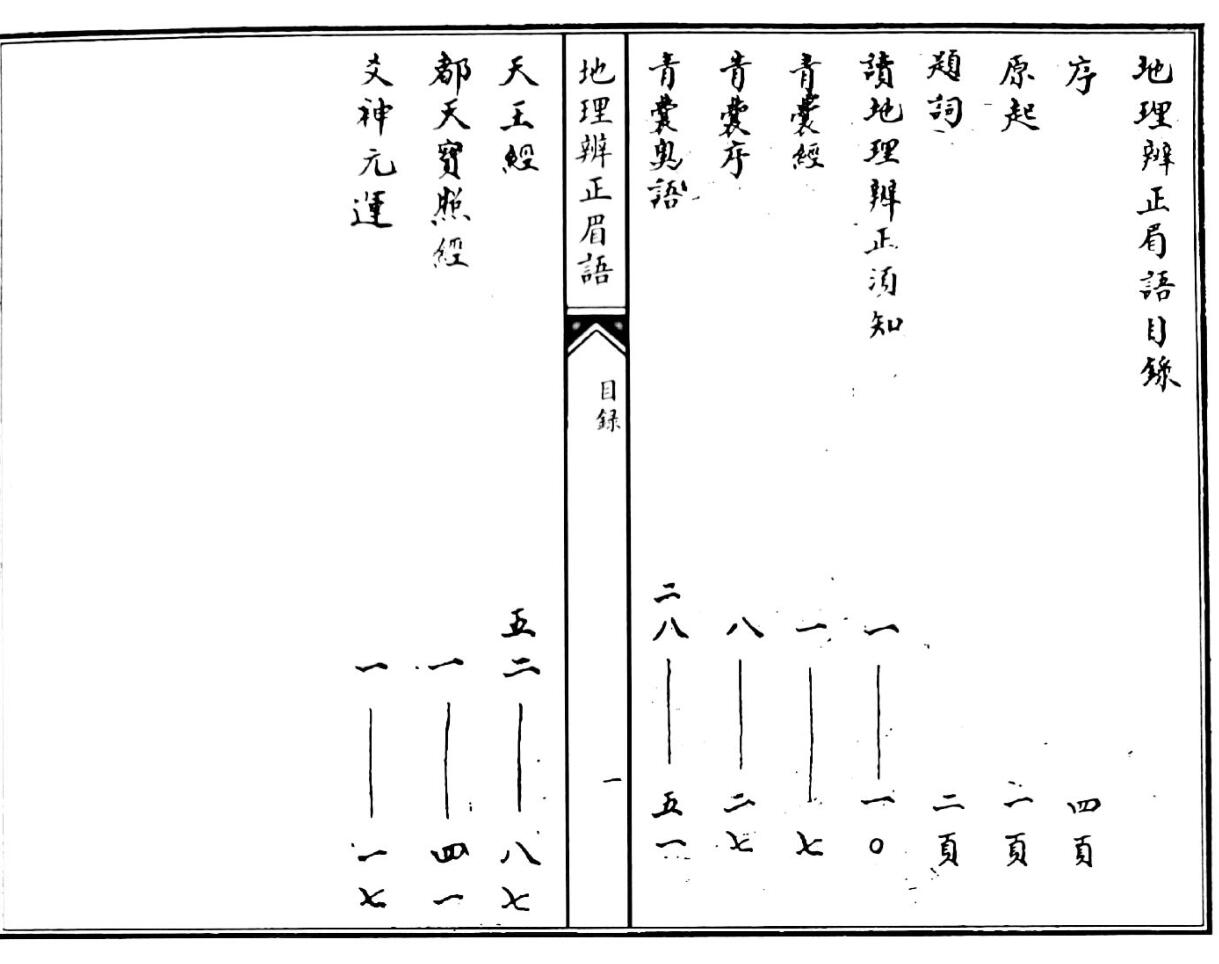 地理辨正眉語目錄
序 四頁
原起 一頁
題詞 二頁
讀地理辨正須知 一——一〇
青囊經 一——七
青囊序 八——二七
青囊奧語 二八——五一
地理辨正眉語 目録 一
天玉經 五二——八七
都天寶照經 一——四一
爻神元運 一——一七